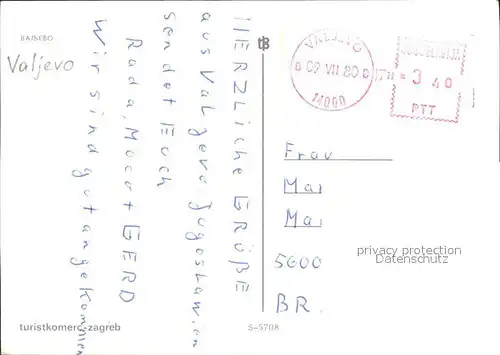 ВАЉЕВО
Valjevo
HERZLICHE GRÜßE
aus Valjevo Jugoslawien
sendet Euch
Rada, + GERD
Wir sind gut angekommen
turistkomerc-zagreb
S-5708
VALJEVO
09 VII 80
14000
3 40
PTT
Frau
Mai
Mai
5600
BR.
privacy protection
Datenschutz